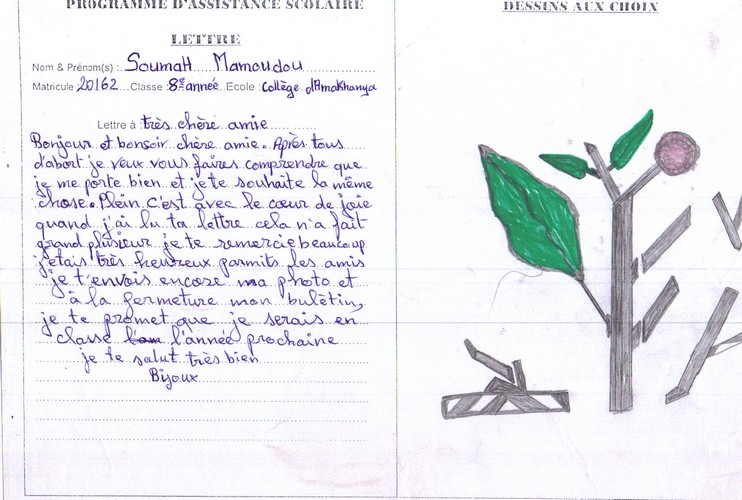 PROGRAMME D'ASSISTANCE SCOLAIRE
LETTRE
Nom & Prénom(s) : Soumah Mamoudou
Matricule 20162 Classe : 8è année Ecole : Collège d'Amakhanya
Lettre à très chère amie
Bonjour et bonsoir chère amie. Après tous
d'abort je veux vous faires comprendre que
je me porte bien et je te souhaite la même
chose. Plein c'est avec le cœur de joie
quand j'ai lu ta lettre cela n'a fait
grand plusieur je te remercie beaucoup
j'etais très heutreux parmits les amis
je t'envois encore ma photo et
à la fermeture mon bulètin,
je te promet que je serais en
classe l'année prochaine
je te salut très bien
Bijoux
DESSINS AUX CHOIX